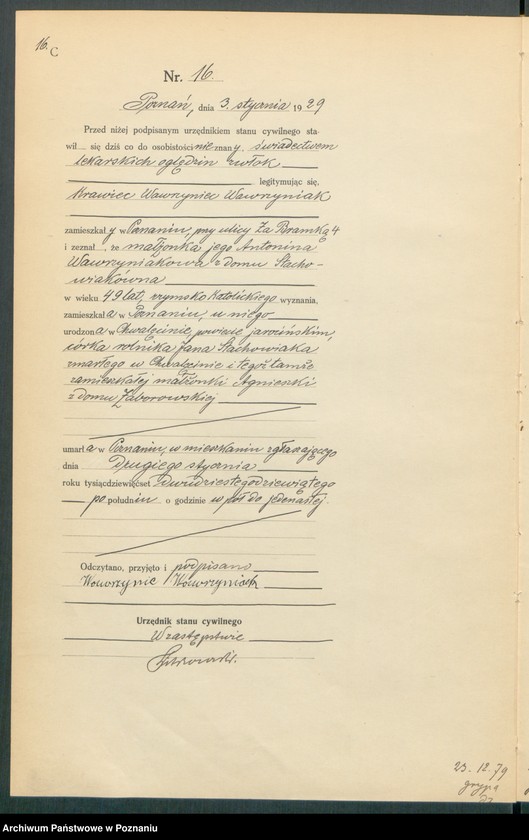 16. C
Nr. 16.
Poznań, dnia 3. stycznia 1929
Przed niżej podpisanym urzędnikiem stanu cywilnego sta-
wił się dziś co do osobistości nieznany, świadectwem
lekarskich oględzin zwłok
legitymując się,
Krawiec Wawrzyniec Wawrzyniak
zamieszkały w Poznaniu, przy ulicy Za Bramką 4
i zeznał, że małżonka jego Antonina
Wawrzyniakowa z domu Stacho-
wiakówna
w wieku 49 lat, rzymsko katolickiego wyznania,
zamieszkała w Poznaniu, u niego
urodzona w Chwalęcinie, powiecie jarocińskim,
córka rolnika Jana Stachowiaka
zmarłego w Chwalęcinie i tegoż tamże
zamieszkałej małżonki Agnieszki
z domu Zaborowskiej
umarła w Poznaniu, w mieszkaniu zgłaszającego
dnia Drugiego stycznia
roku tysiącdziewięćset Dwudziestegodziewiątego
po południu o godzinie w pół do jedenastej.
Odczytano, przyjęto i podpisano
Wawrzynic Wawrzyniack
Urzędnik stanu cywilnego
W zastępstwie
23. 12. 79
grypa
Archiwum Państwowe w Poznaniu